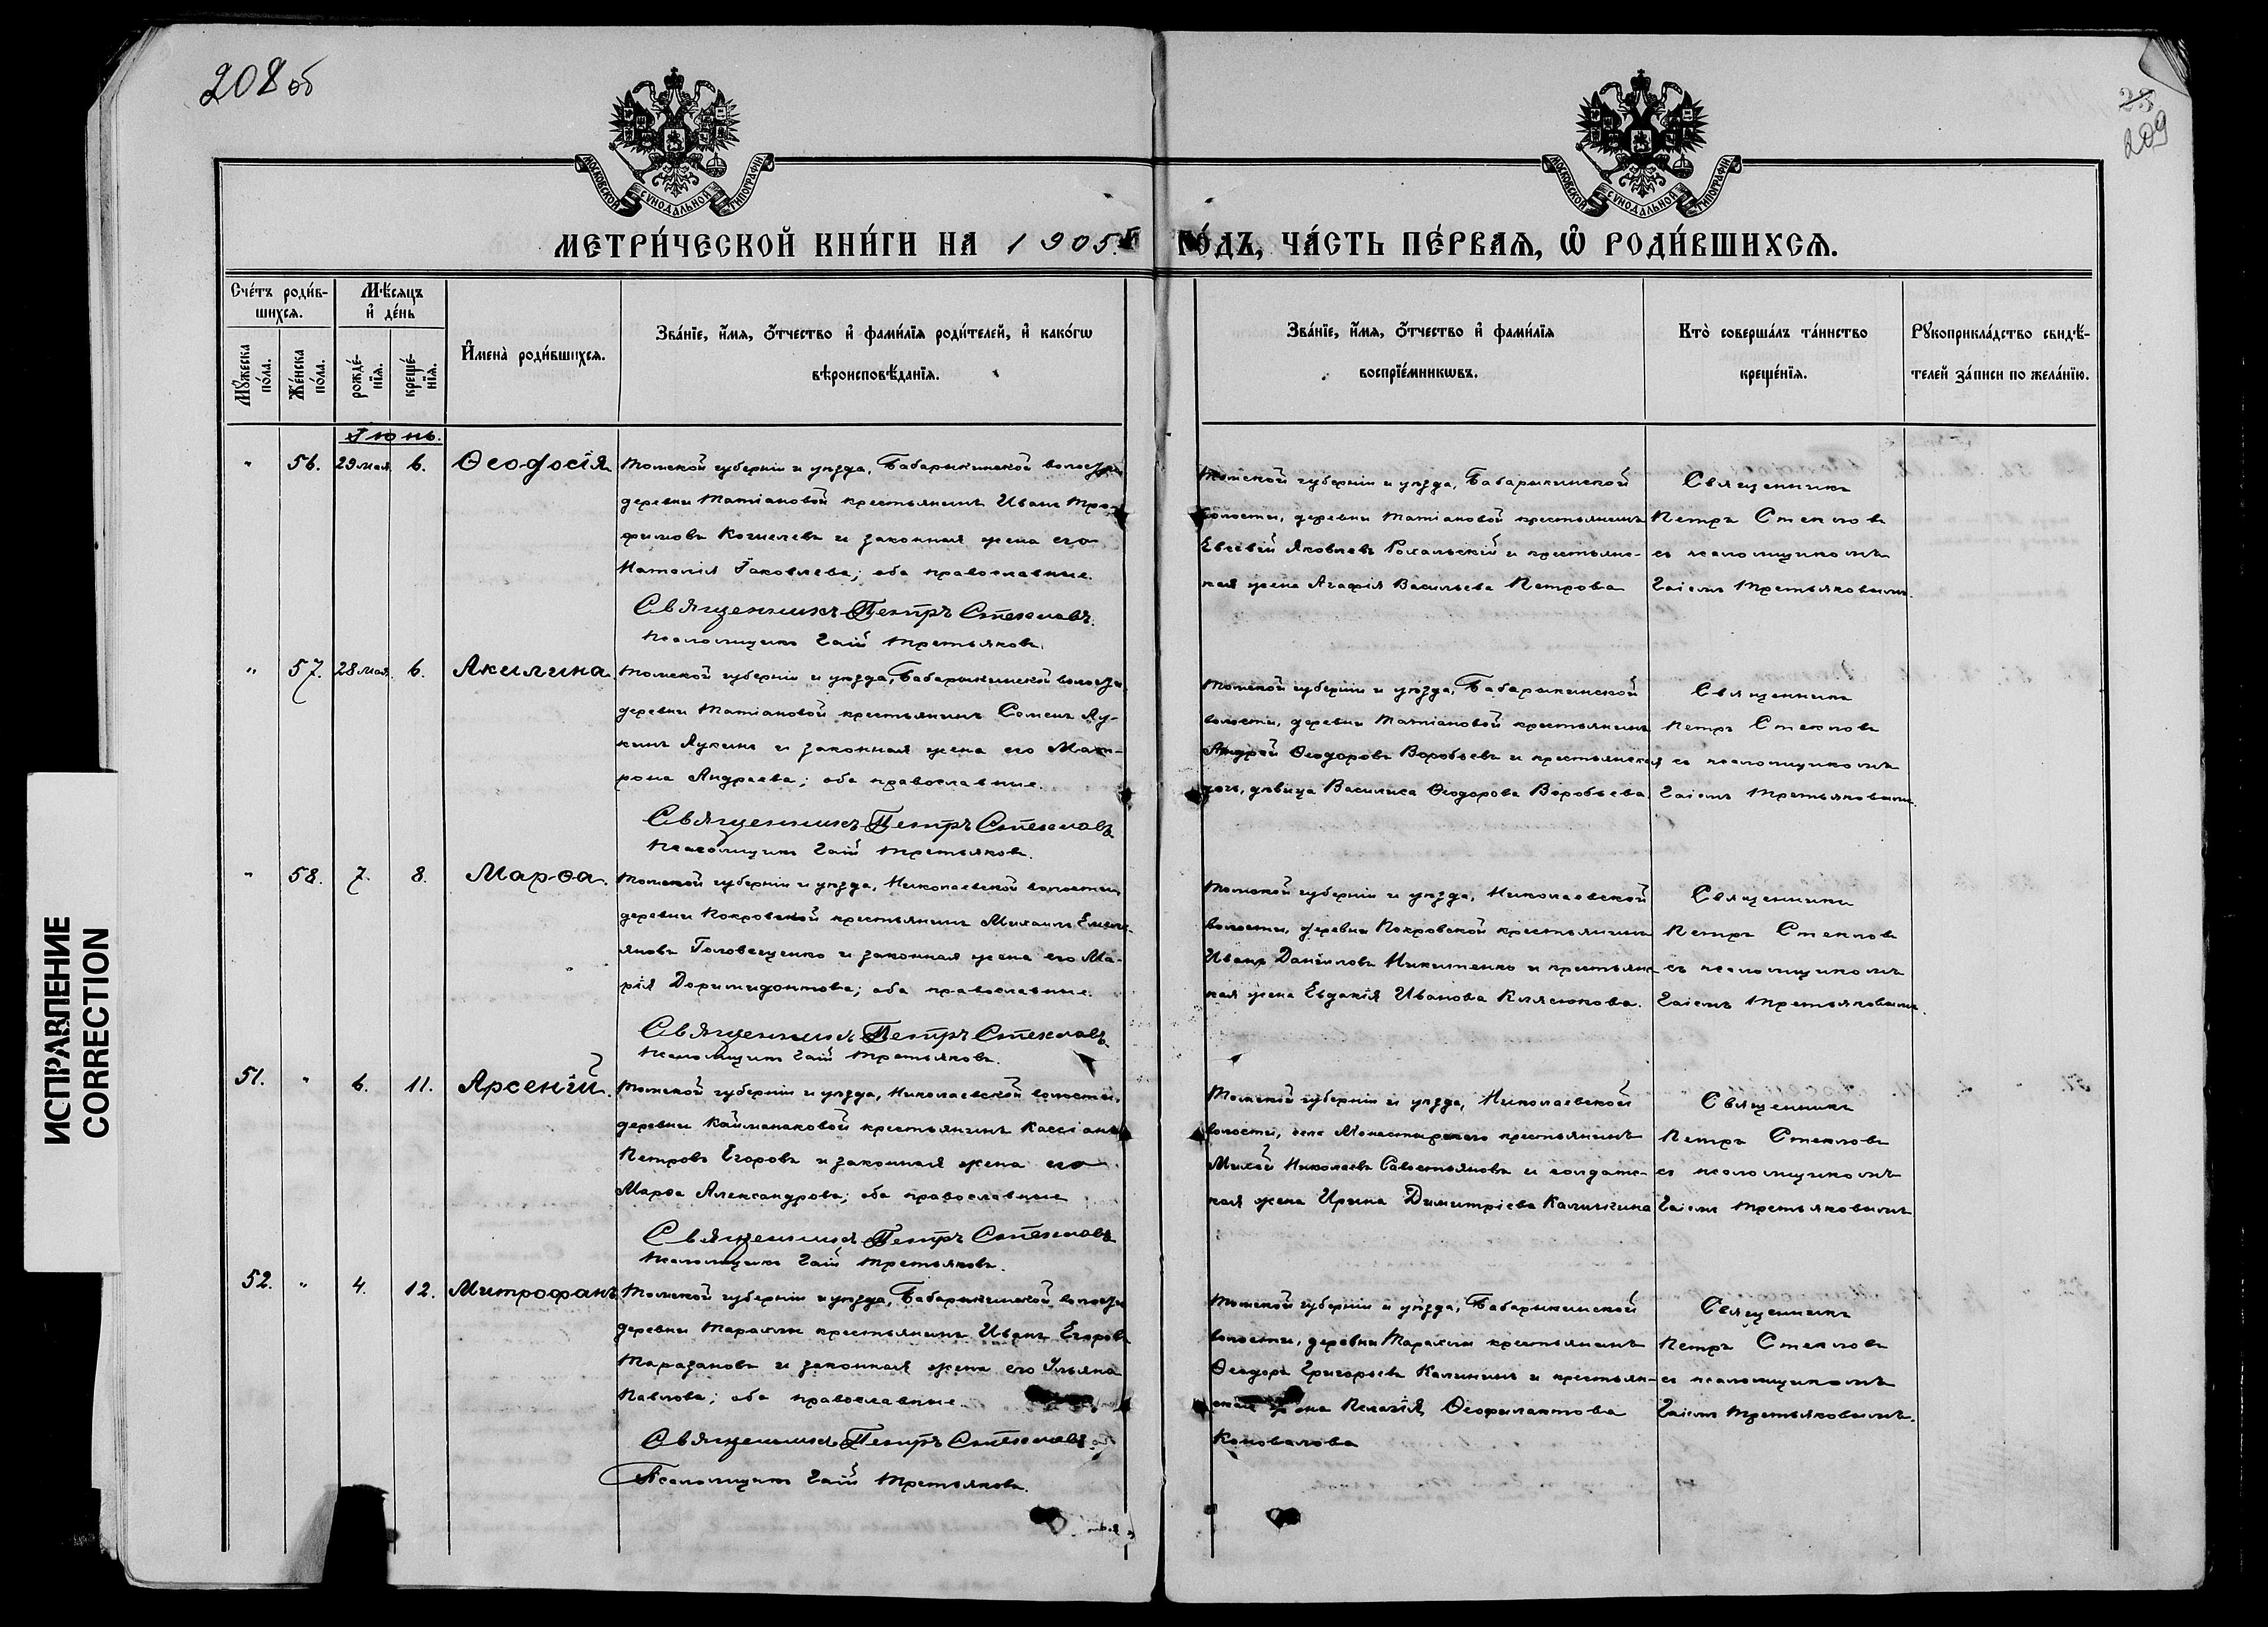 208 об
25
209
МОСКОВСКОЙ СУНОДАЛЬНОЙ ТИПОГРАФІИ
МОСКОВСКОЙ СУНОДАЛЬНОЙ ТИПОГРАФІИ
МЕТРИ́ЧЕСКОЙ КНИ́ГИ НА 1905 ГО́ДЪ, ЧА́СТЬ ПЕ́РВАѦ, Ѽ РОДИ́ВШИХСѦ.
Сче́тъ роди́в-
шихсѧ.
Мꙋ́жеска по́ла.
Же́нска по́ла.
Мѣ́сѧцъ
и҆ де́нь
рожде́-
нїѧ.
креще́-
нїѧ.
И҆мена̀ роди́вшихсѧ.
Зва́нїе, и҆́мѧ, ѻ҆́тчество и҆ фами́лїѧ роди́телей, и҆ како́гѡ
вѣроисповѣ́данїѧ.
Зва́нїе, и҆́мѧ, ѻ҆́тчество и҆ фами́лїѧ
воспрїе́мникѡвъ.
Кто̀ соверша́лъ та́инство
креще́нїѧ.
Рꙋкоприкла́дство свидѣ́-
телей за́писи по жела́нїю.
Іюнь.
" 56. 29 мая 6. Ѳеодосія
Томской губерніи и уѣзда, Бабарыкинской волости
деревни Татіановой крестьянинъ Иванъ Тро-
фимовъ Кошелевъ и законная жена его
Наталія Іаковлева; оба православные.
Священникъ Петръ Стекловъ.
Псаломщикъ Гаій Третьяковъ.
Томской губерніи и уѣзда, Бабарыкинской
волости, деревни Татіановой крестьянинъ
Евсевій Яковлевъ Рохальскій и крестьянс-
кая жена Агафія Васильева Петрова
Священникъ
Петръ Стекловъ
съ псаломщикомъ
Гаіемъ Третьяковымъ.
" 57. 28 мая. 6. Акилина
Томской губерніи и уѣзда, Бабарыкинской волости
деревни Татіановой крестьянинъ Семенъ Лу-
кинъ Лукинъ и законная жена его Мат-
рона Андреева; оба православные.
Священникъ Петръ Стекловъ
Псаломщикъ Гаій Третьяковъ.
Томской губерніи и уѣзда, Бабарыкинской
волости, деревни Татіановой крестьянинъ
Андрей Ѳеодоровъ Воробьевъ и крестьянская
дочь, дѣвица Василиса Ѳеодорова Воробьева
Священникъ
Петръ Стекловъ
съ псаломщикомъ
Гаіемъ Третьяковымъ.
" 58. 7. 8. Марѳа.
Томской губерніи и уѣзда, Николаевской волости,
деревни Покровской крестьянинъ Михаилъ Емель-
яновъ Головещенко и законная жена его Ма-
рія Доримидонтова; оба православные.
Священникъ Петръ Стекловъ
Псаломщикъ Гаій Третьяковъ.
Томской губерніи и уѣзда, Николаевской
волости, деревни Покровской крестьянинъ
Иванъ Даніиловъ Никитенко и крестьянс-
кая жена Евдокія Иванова
Священникъ
Петръ Стекловъ
съ псаломщикомъ
Гаіемъ Третьяковымъ.
51. " 6. 11. Арсеній.
Томской губерніи и уѣзда, Николаевской волости,
деревни Каймонаковой крестьянинъ Кассіанъ
Петровъ Егоровъ и законная жена его
Марѳа Александрова; оба православные
Священникъ Петръ Стекловъ
Псаломщикъ Гаій Третьяковъ.
Томской губерніи и уѣзда, Николаевской
волости, села Монастырскаго крестьянинъ
Михей Николаевъ Савостьяновъ и солдатс-
кая жена Ирина Димитріева Калинкина
Священникъ
Петръ Стекловъ
съ псаломщикомъ
Гаіемъ Третьяковымъ
52. " 4. 12. Митрофанъ
Томской губерніи и уѣзда, Бабарыкинской волости
деревни Тараклы крестьянинъ Иванъ Егоровъ
Таразановъ и законная жена его Ульяна
Павлова; оба православные.
Священникъ Петръ Стекловъ
Псаломщикъ Гаій Третьяковъ.
Томской губерніи и уѣзда, Бабарыкинской
волости, деревни Тараклы крестьянинъ
Ѳеодоръ Григорьевъ Калининъ и крестьян-
ская жена Пелагія Ѳеофилактова
Коновалова
Священникъ
Петръ Стекловъ
съ псаломщикомъ
Гаіемъ Третьяковымъ.
ИСПРАВЛЕНИЕ
CORRECTION